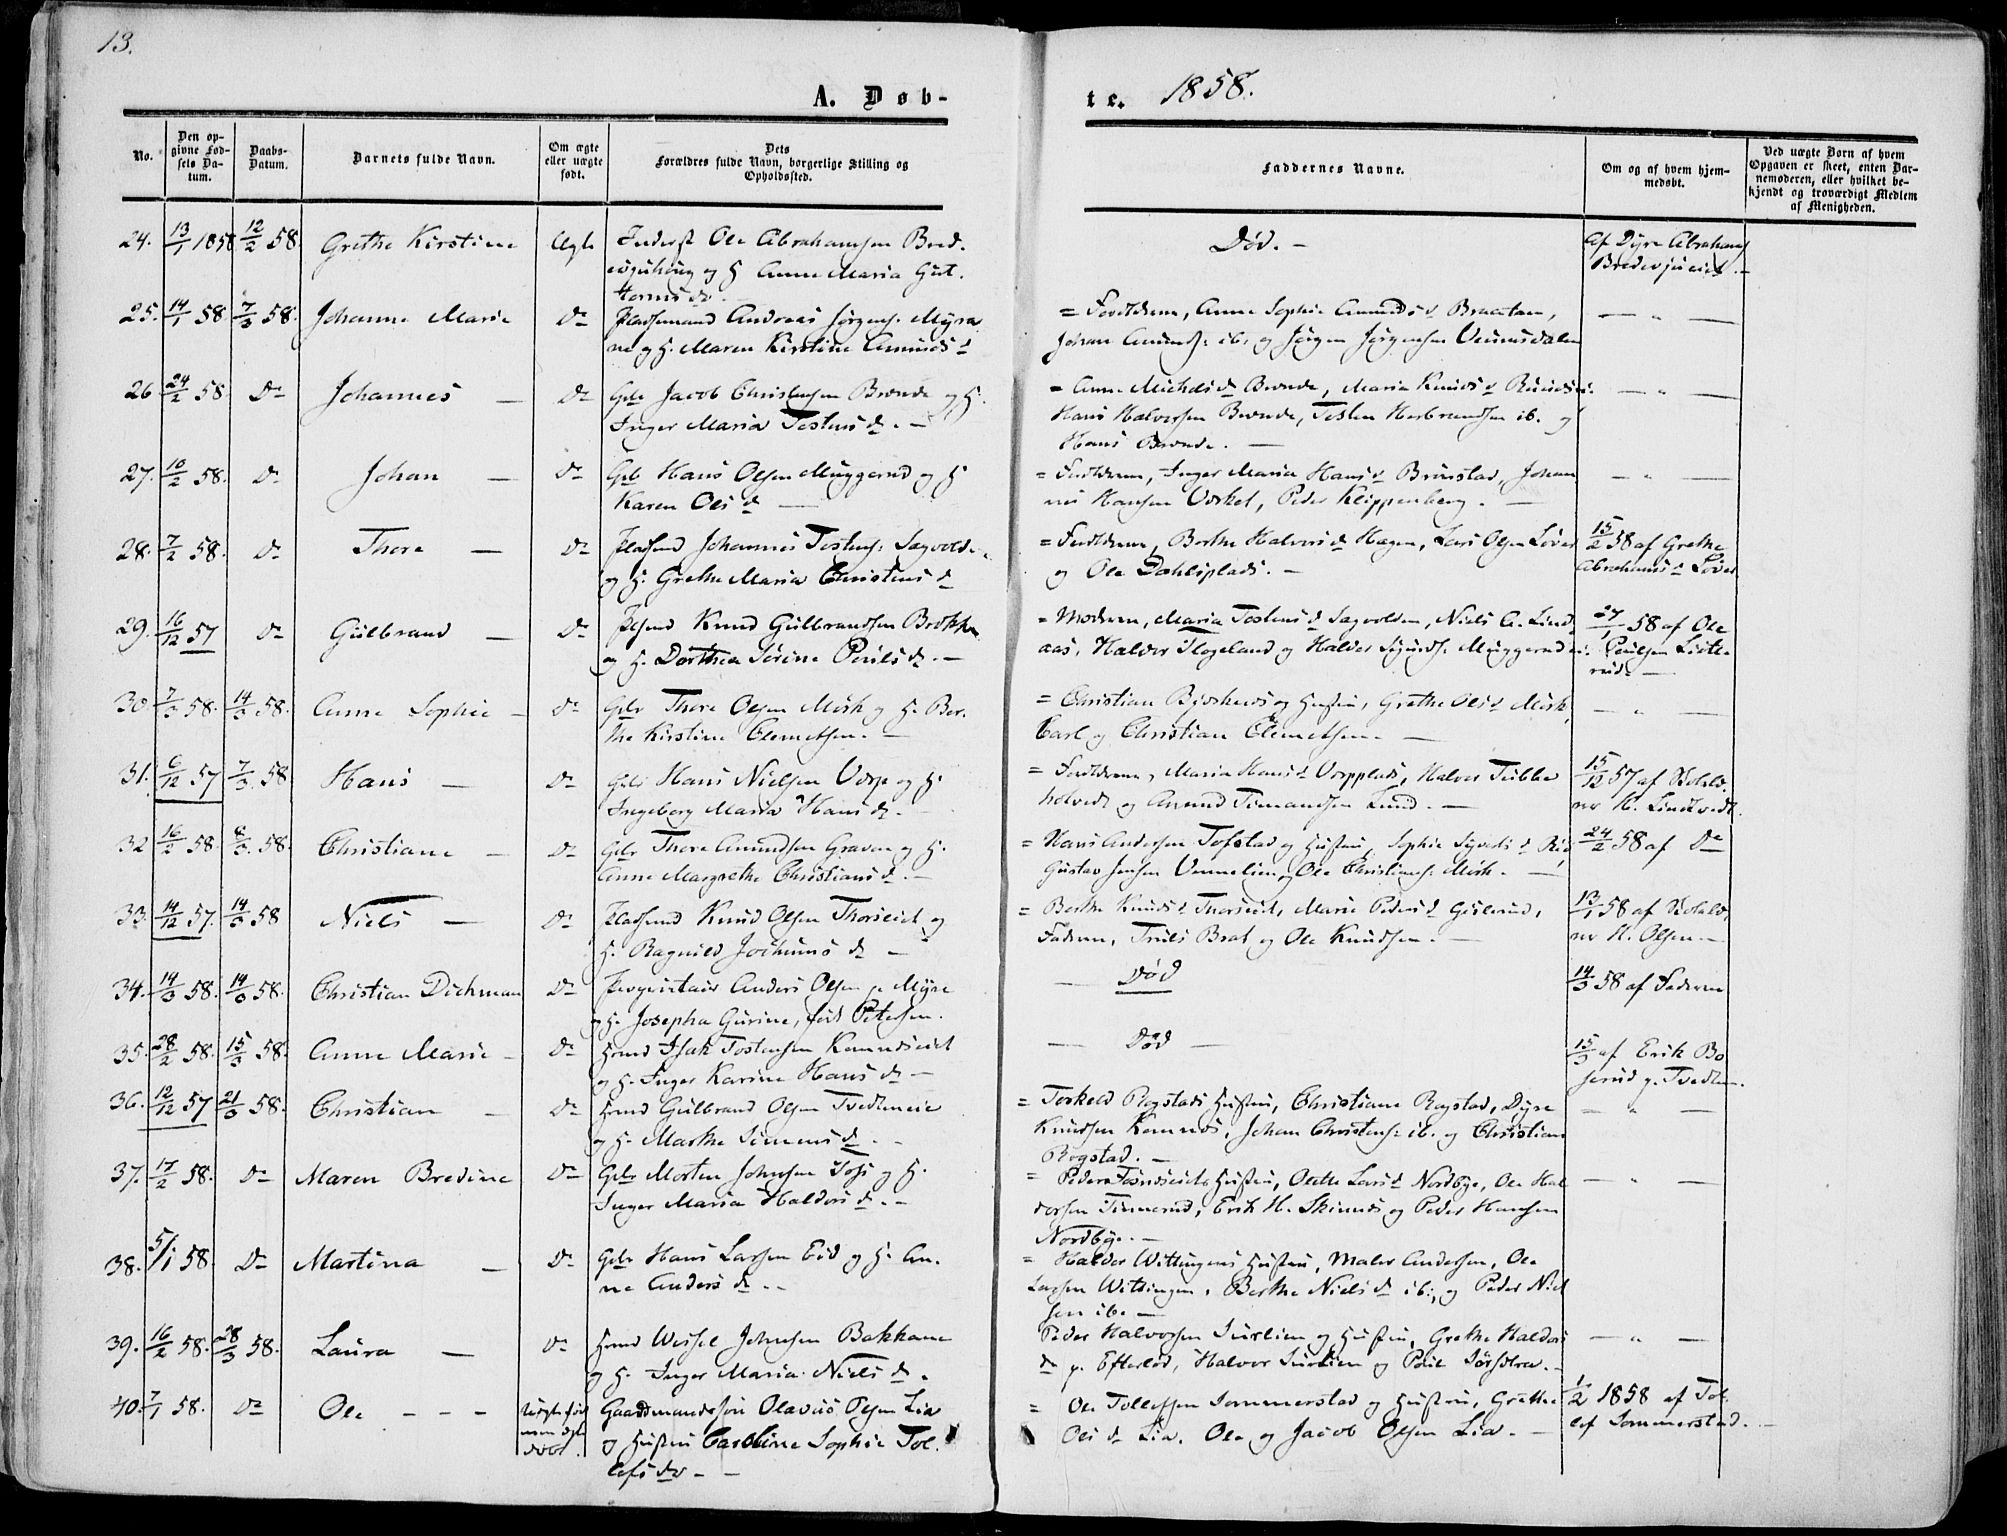 13.
A. Døb-
te. 1858.
No.
Den op-
givne Fød-
sels Da-
tum.
Daabs-
Datum.
Barnets fulde Navn.
Om ægte
eller uægte
født.
Dets
Forældres fulde Navn, borgerlige Stilling og
Opholdssted.
Faddernes Navne.
Om og af hvem hjem-
medøbt.
Ved uægte Børn af hvem
Opgaven er skeet, enten Bar-
nemoderen, eller hvilket be-
kjendt og troværdigt Medlem
af Menigheden.
24. 13/1 1858 12/2 58. Grethe Kirstine Ægte Inderst Ole Abrahamsen
og H Anne Maria Gut-
torms dr.
Død. -
Af Dyre Abrahams
25. 14/1 58 7/3 58. Johanne Marie Do Pladsemand Andreas Jørgens. Myra
ne og H. Maren Kirstine Amunds d
= Forældrene, Anne Sophie Amunds d Braatan,
Johan Amunds: ib. og Jørgen Jørgensen
— " —
26 24/2 58. Do Johannes — Do Gbr Jacob Christensen Brønde og H.
Inger Maria Tostens d. —
= Anne Michels d Brønde, Maria Knuds d
Hans Halvorsen Brønde, Tosten Herbrandsen ib. og
Hans Brønde. —
— " —
27. 10/2 58. Do Johan — Do Gbr Hans Olsen Muggerud og H
Karen Ols d —
= Forældrene, Inger Maria Hans d Brunstad, Johan
nes Hansen Værket, Peder Klippenberg. —
— " —
28. 7/2 58. Do Thore — Do Pladsmd Johannes Tostens: Sagvolde
og H. Grethe Maria Christens d
= Forældrene, Berthe Halvors d Hagen, Lars Olsen Løver
og Ole Dahlsplads. —
15/2 58 af Grethe
Abrahams d Løver
29. 16/12 57 Do Gulbrand — Do Plsmd Knud Gulbrandsen Brekke
og H. Dorthea Sørine Pouls d. —
= Moderen, Maria Tostens d Sagvolden, Niels C. Lind-
aas, Halvor Hogeland og Halvor Muggerud
27/1 58 af Ole
Poulsen
rud. —
30 7/3 58. 14/3 58. Anne Sophie — Do Gbr Thore Olsen Mørk og H. Ber-
the Kirstine Clemetsen. —
= Christian og Hustru, Grethe Ols d Mørk,
Carl og Christian Clemetsen. —
— " —
31. 6/12 57 7/3 58 Hans — Do Gbr Hans Nielsen Vorp og H
Ingeborg Maria Hans d. —
= Forældrene, Maria Hans d Vorpplads, Halvor Tubbe
holvedt og Amund Simundsen Lund. —
15/12 57 af
H. Lindtvedt
32 16/2 58. 8/3. 58. Christiane — Do Gbr Thore Amundsen Graven og H.
Anne Margrethe Christians d. —
= Hans Andersen Tofstad og Hustru, Sophie Syverts d
Gustav Jensen og Ole Christians: Mørk. —
24/2 58 af Do
33. 14/12 57. 14/3 58 Niels — Do Pladsmd Knud Olsen Thorseiet og
H. Ragnild Jochums d —
= Berthe Knuds d Thorseiet, Marie Peders d
Faderen, Truls Brat og Ole Knudsen. —
13/1 58 af
H. Olsen. —
34. 14/3 58. 14/3 58. Christian Dichman Do Proprietair Anders Olsen p. Myre
og H. Josepha Gurine, født Petersen.
— Død
14/3 58 af Faderen
35. 28/2 58. 15/3 58. Anne Marie — Do Hmd Isak Tostensen
og H. Inger Karine Hans d —
— Død —
15/3 af Erik Bo
serud p.
36. 12/12 57 21/3 58. Christian — Do Hmd Gulbrand Olsen
og H. Marthe Simens d. —
= Torkeld Rogstads Hustru, Christiane Rogstad, Dyre
Knudsen Johan Christens: ib. og Christian
Rogstad. —
— " —
37. 17/2 58. Do Maren Bredine Do Gbr Morten Johnsen og H.
Inger Maria Halvors d. —
= Peder Hustru, Lars d Nordbye, Ole Hal
vorsen Erik H. og Peder Hansen
Nordbye. —
— " —
38. 5/1 58. Do Martina — Do Gbr Hans Larsen Eid og H. An-
ne Anders d. —
= Halvor Wittingens Hustru, Maler Andersen, Ole
Larsen Wittingen, Berthe Niels d ib., og Peder Niel
sen ib. —
39. 16/2 58. 28/3 58. Laura — Do Hmd Wessel Johnsen Bakkane
og H. Inger Maria Niels d.
Peder Halvorsen Surlien og Hustru, Grethe Halvors
d p. Efterlød, Halvor Surlien og Poul
— " —
40. 7/1 58. Do Ole - - - Uægte født
men
døbt. Gaardmandssøn Olavus Olsen Lia
og Hustru Caroline Sophie Tol-
lefs dr. —
= Ole Tollefsen Sommerstad og Hustru, Grethe
Ols d Lia. Ole og Jacob Olsen Lia. —
1/2 1858 af Tol-
lef Sommerstad. —